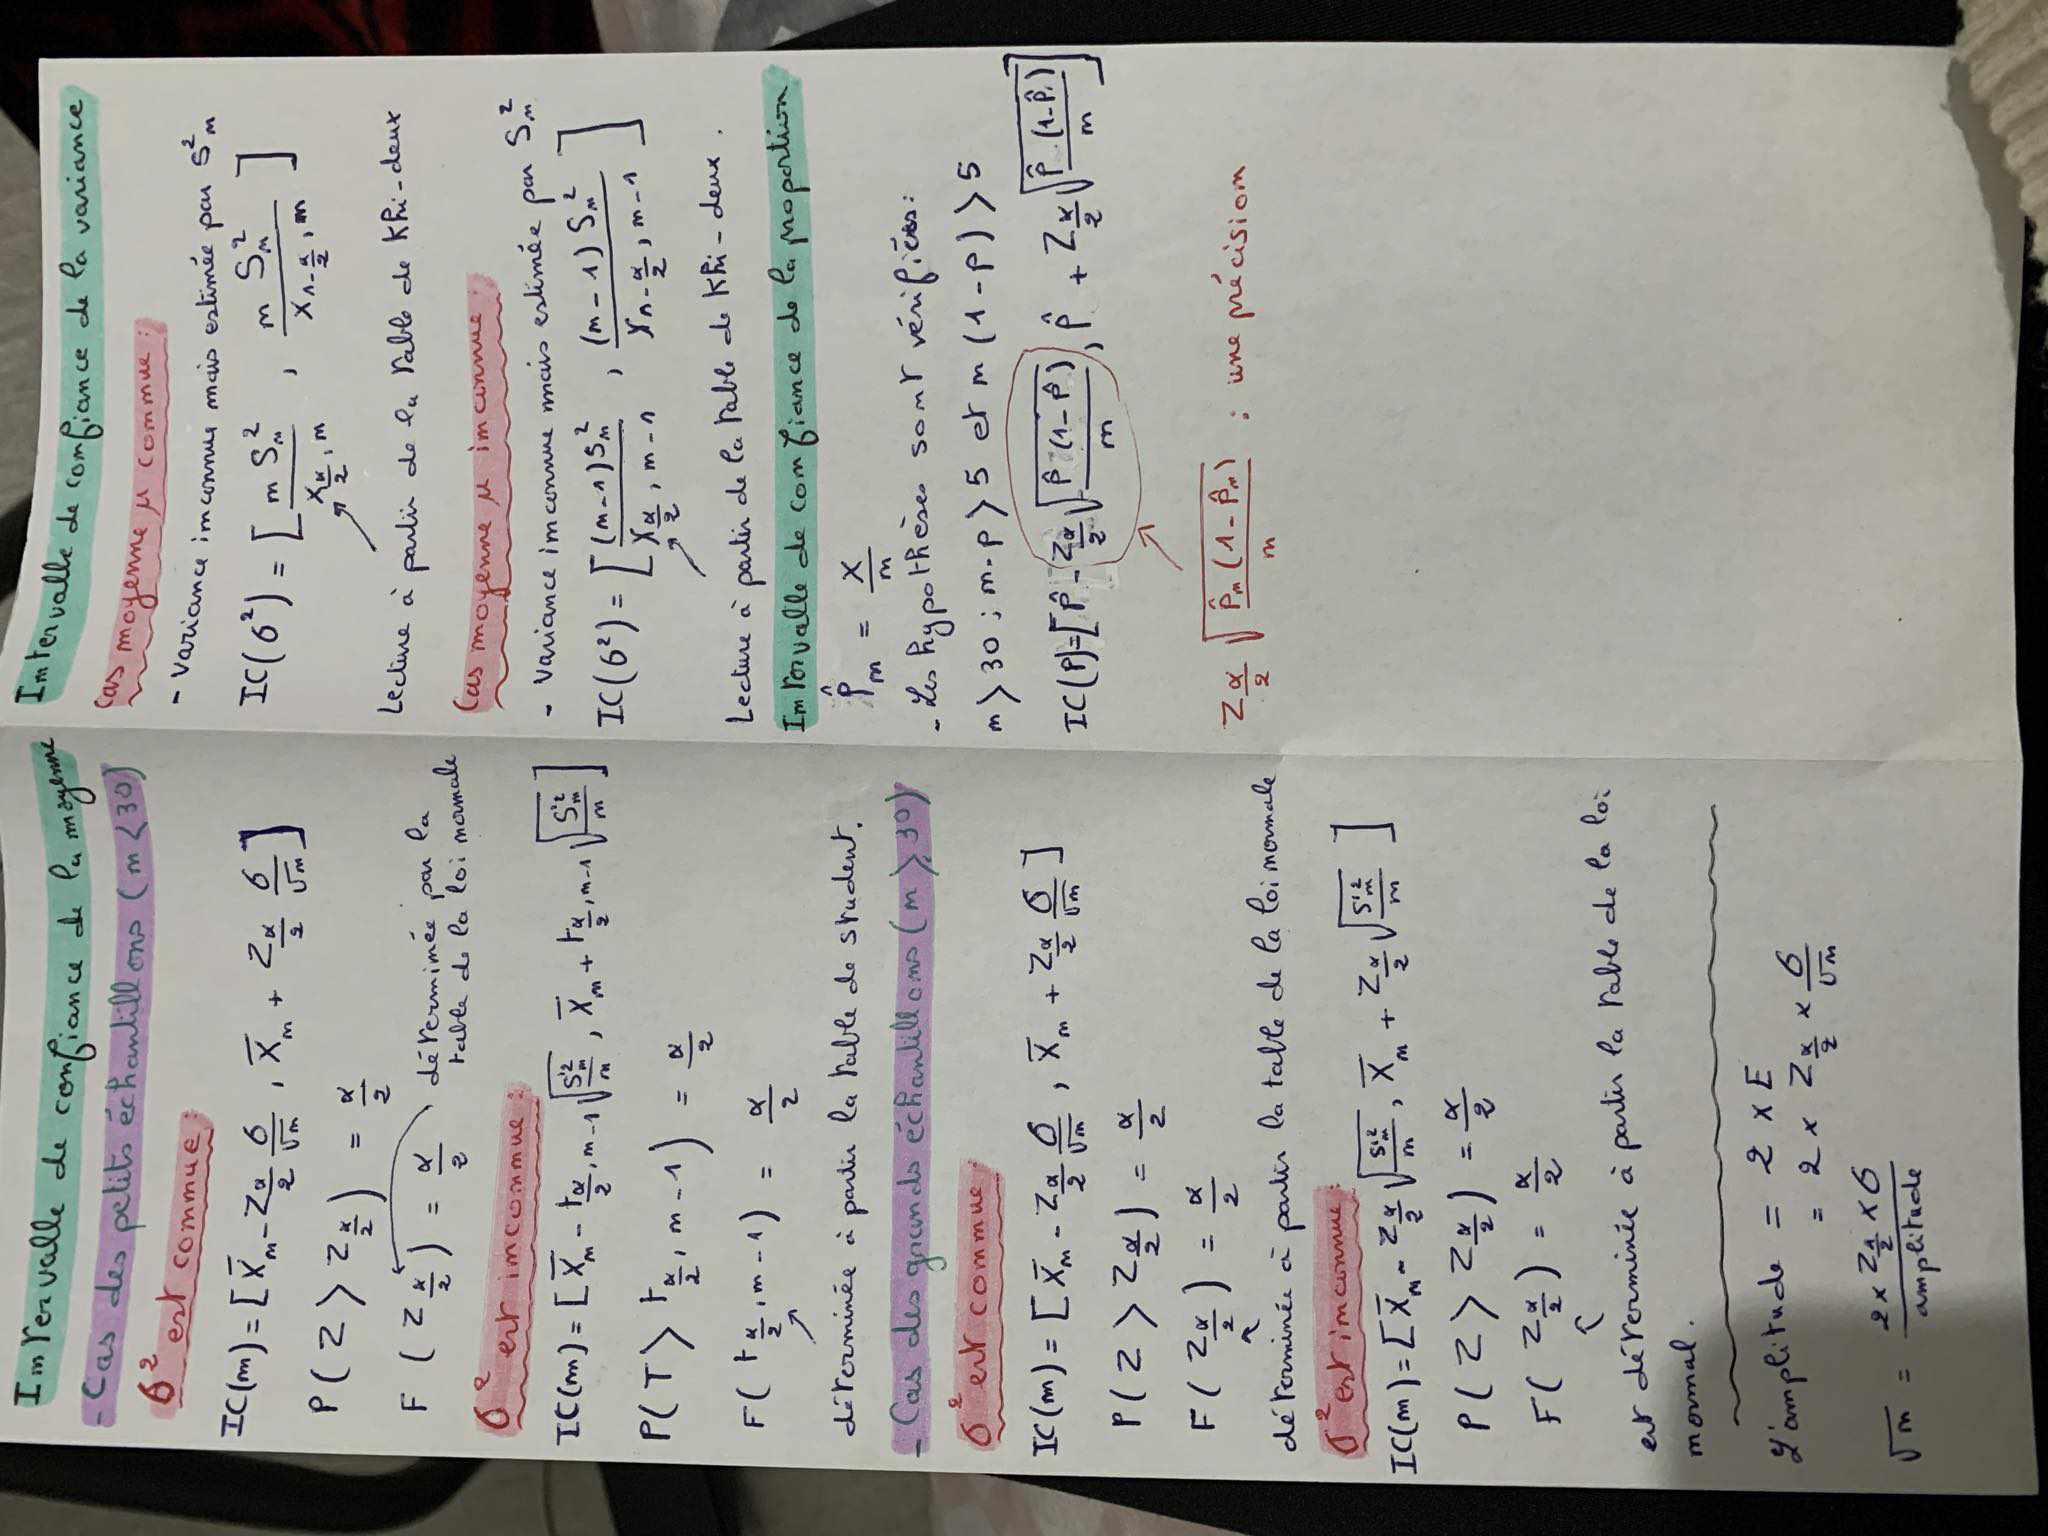 Intervalle de confiance de la moyenne
- Cas des petits échantillons (n < 30)
σ² est connue :
IC(m) = [ X̄n - Zα/2 σ/√n , X̄n + Zα/2 σ/√n ]
P( Z > Zα/2 ) = α/2
F ( Zα/2 ) = α/2 déterminée par la
table de la loi normale
σ² est inconnue :
IC(m) = [ X̄n - tα/2, n-1 √(S'²n/n) , X̄n + tα/2, n-1 √(S'²n/n) ]
P( T > tα/2, n-1 ) = α/2
F( tα/2, n-1 ) = α/2
déterminée à partir la table de student.
- Cas des grands échantillons (n ⩾ 30)
σ² est connue :
IC(m) = [ X̄n - Zα/2 σ/√n , X̄n + Zα/2 σ/√n ]
P( Z > Zα/2 ) = α/2
F( Zα/2 ) = α/2
déterminée à partir la table de la loi normale
σ² est inconnue :
IC(m) = [ X̄n - Zα/2 √(S'²n/n) , X̄n + Zα/2 √(S'²n/n) ]
P( Z > Zα/2 ) = α/2
F( Zα/2 ) = α/2
est déterminée à partir la table de la loi
normal.
L'amplitude = 2 x E
= 2 x Zα/2 x σ/√n
√n = (2 x Zα/2 x σ)/amplitude
Intervalle de confiance de la variance
Cas moyenne μ connue :
- variance inconnue mais estimée par S²n
IC(σ²) = [ n S²n / Xα/2, n , n S²n / X1-α/2, n ]
Lecture à partir de la table de Khi-deux
Cas moyenne μ inconnue :
- variance inconnue mais estimée par S²n
IC(σ²) = [ (n-1)S²n / Xα/2, n-1 , (n-1) S²n / X1-α/2, n-1 ]
Lecture à partir de la table de Khi-deux .
Intervalle de confiance de la proportion
P̂n = X/n
- Les hypothèses sont vérifiées :
n > 30 ; n.p > 5 et n (1-p) > 5
IC(P)= [ P̂ - Zα/2 √(P̂ (1-P̂)/n) , P̂ + Zα/2 √(P̂ . (1-P̂.)/n) ]
Zα/2 √(P̂n (1-P̂n)/n) : une précision